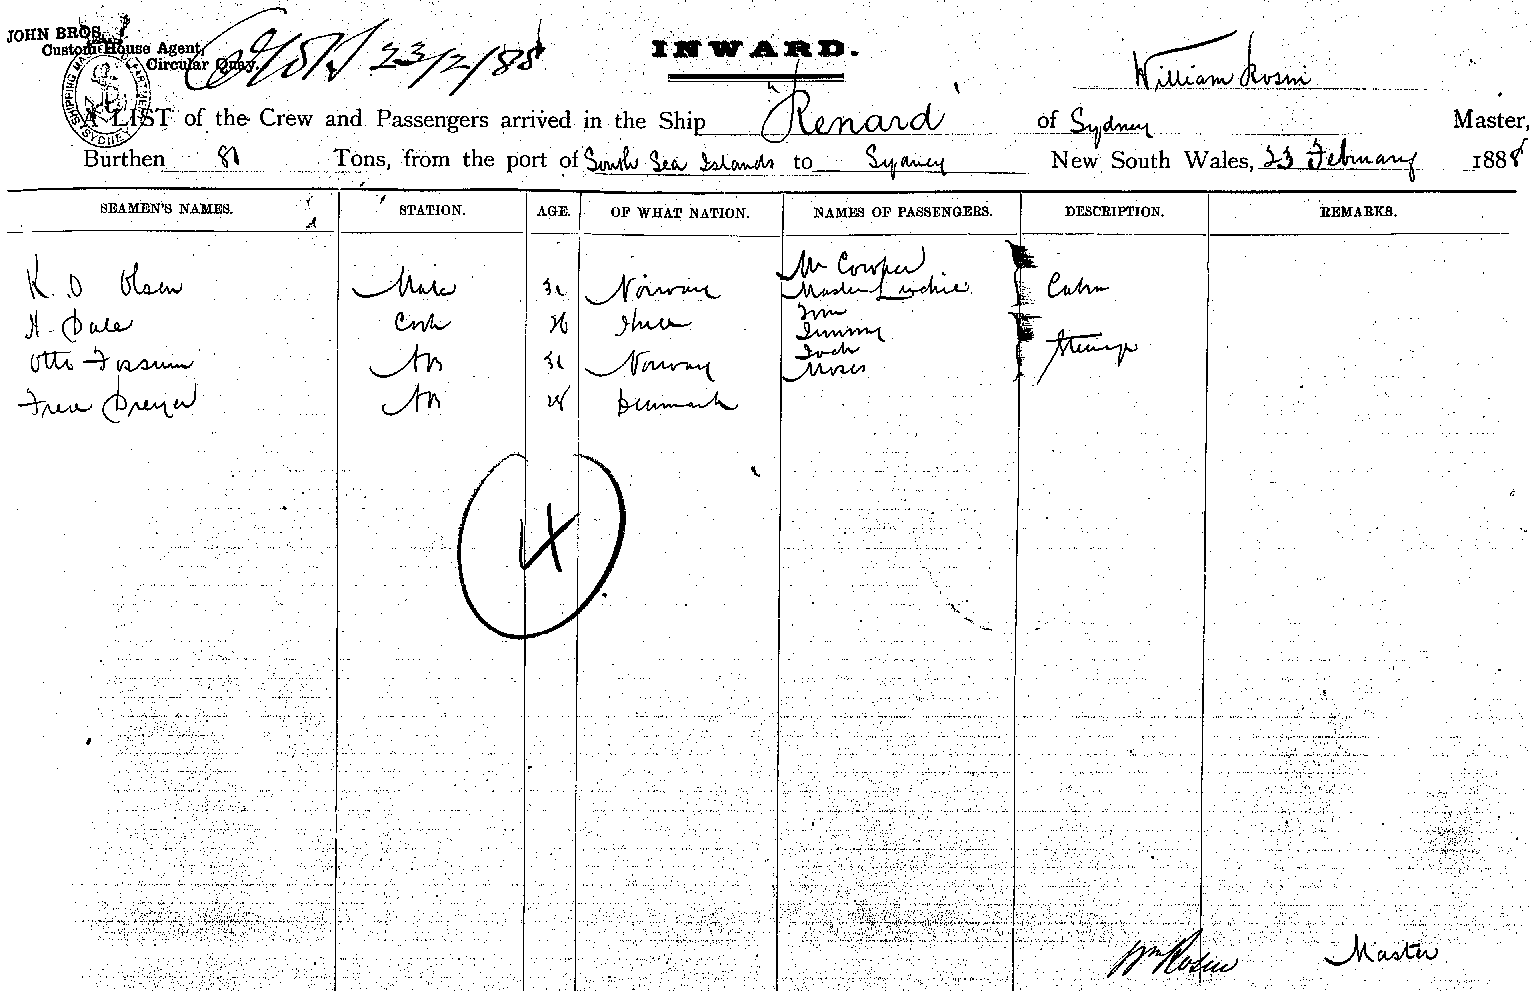 JOHN BROS.
Custom House Agent,
Circular Quay.
23/2/88
INWARD.
William Rosin
A LIST of the Crew and Passengers arrived in the Ship "Renard" of Sydney Master,
Burthen 81 Tons, from the port of South Sea Islands to Sydney New South Wales, 23 February 1888
SEAMEN'S NAMES. STATION. AGE. OF WHAT NATION. NAMES OF PASSENGERS. DESCRIPTION. REMARKS.
Mr Cowper
K. O Olsen Mate 31 Norway Master Cabin
Jim
H. Dale Cook Jimmy
Jack Steerage
Otto Fossum AB 31 Norway Moses
Dreyer AB 28 Denmark
4
Wm Rosin Master